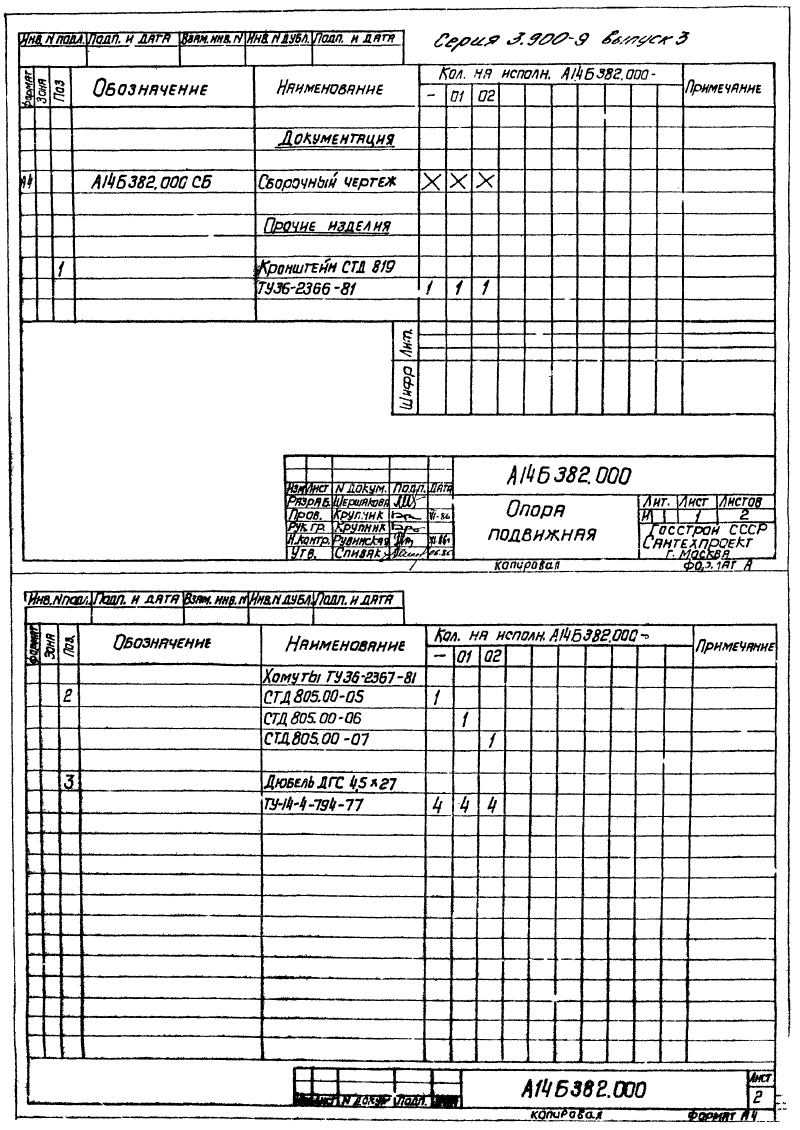 Серия 3.900-9 выпуск 3
Инв. N подл. Подп. и дата Взам. инв. N Инв. N дубл. Подп. и дата
Формат Зона Поз Обозначение Наименование Кол. на исполн. А14Б382.000- Примечание
- 01 02
Документация
А4 А14Б382.000 СБ Сборочный чертеж X X X
Прочие изделия
1 Кронштейн СТД 819
ТУ36-2366-81 1 1 1
Лит.
Шифр
А14Б382.000
Изм Лист N докум. Подп. Дата
Разраб. Шершакова
Пров. Крупник VI-86
Рук. гр. Крупник
Н. контр. Рувинская VI.86
Утв. Спивак 06.86
Опора
подвижная
Лит. Лист Листов
И 1 2
Госстрой СССР
Сантехпроект
г. Москва
копировал
Инв. N подл. Подп. и дата Взам. инв. N Инв. N дубл. Подп. и дата
Формат Зона Поз. Обозначение Наименование Кол. на исполн. А14Б382.000- Примечание
- 01 02
Хомуты ТУ36-2367-81
2 СТД 805.00-05 1
СТД 805.00-06 1
СТД 805.00-07 1
3 Дюбель ДГС 4,5×27
ТУ-14-4-794-77 4 4 4
Лист N докум Подп.
А14Б382.000
Лист
2
копировал Формат А4